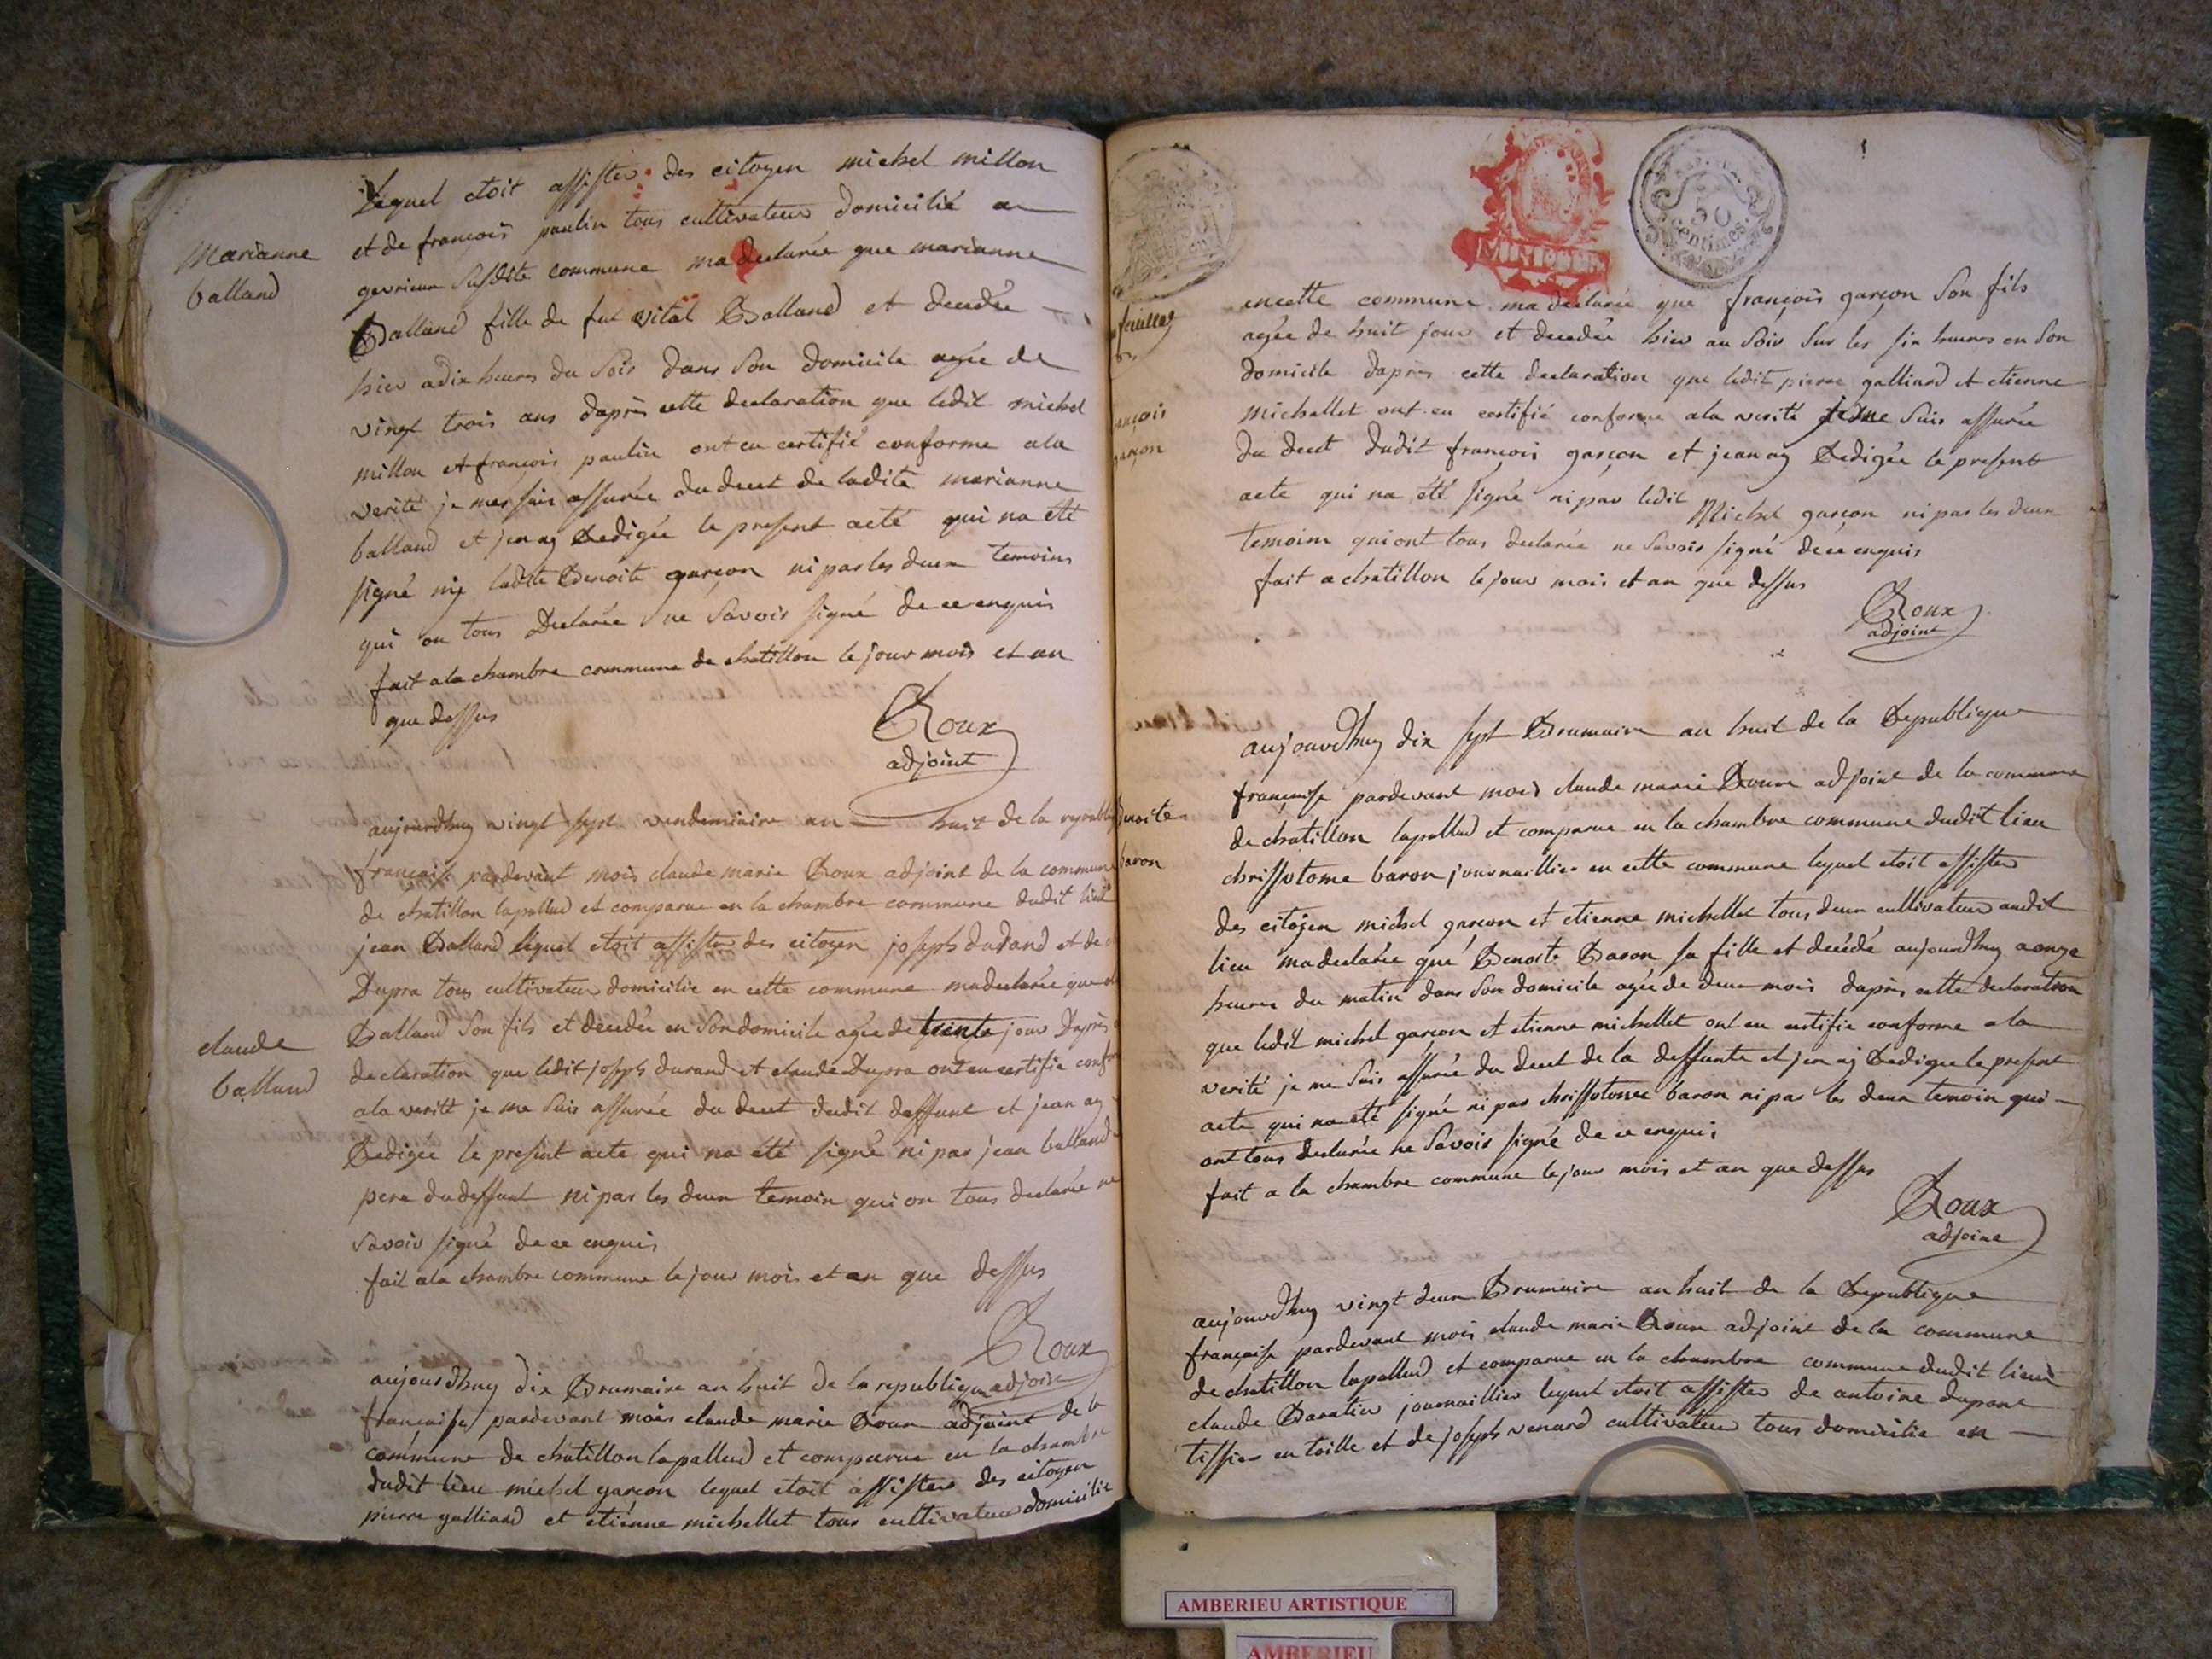 Lequel etoit assister des citoyen michel millon
et de françois paulin tous cultivateur domicilié a
gevrieux susdite commune ma declarée que marianne
Balland fille de feu vital Balland et decedée
hier a dix heures du soir dans son domicile agée de
vingt trois ans daprès cette declaration que ledit michel
millon et françois paulin ont eu certifié conforme a la
verité je me suis assurée du decet de ladite marianne
balland et jen ay Redigée le present acte qui na eté
signé ny ladite Benoite garçon ni par les deux temoins
qui on tous Declarée ne savoir signé de ce enquis
fait a la chambre commune de chatillon le jour mois et an
que dessus
Roux
adjoint
Marianne
balland
aujourdhuy vingt sept vendemiaire an huit de la republi
française pardevant mois claude marie Roux adjoint de la commune
de chatillon lapallud et comparue en la chambre commune dudit lieu
jean Balland lequel etoit assister des citoyen joseph durand et de
Dupra tous cultivateur domicilie en cette commune ma declarée que
Balland son fils et decedée en son domicile agée de trente jour Daprès
declaration que ledit joseph durand et claude Dupra ont eu certifie conf
a la verité je me suis assurée du decet dudit deffunt et jean ay
Redigée le present acte qui na eté signé ni par jean balland
pere du deffunt ni par les deux temoin qui on tous declarée ne
savoir signé de ce enquis
fait a la chambre commune le jour mois et an que dessus
Roux
adjoint
claude
balland
aujourdhuy dix Brumaire an huit de la republique
française pardevant mois claude marie Roux adjoint de la
commune de chatillon lapallud et comparue en la chambre
dudit lieu michel garçon lequel etoit assister des citoyen
pierre galliand et etiénne michellet tous cultivateur domicilie
50
centimes
encette commune ma declarée que françois garçon son fils
agée de huit jour et decedée hier au soir sur les six heures en son
domicile daprès cette declaration que ledit pierre galliand et etienne
michellet ont eu certifié conforme a la verité je me suis assurée
du decet dudit françois garçon et jean ay Redigée le present
acte qui na été signé ni par ledit Michel garçon ni par les deux
temoins qui ont tous declarée ne savoir signé de ce enquis
fait a chatillon le jour mois et an que dessus
Roux
adjoint
feuillet
ançois
garçon
aujourdhuy dix sept Brumaire an huit de la Republique
française pardevant mois claude marie Roux adjoint de la commune
de chatillon lapallud et comparue en la chambre commune dudit lieu
chrissotome baron journaillier en cette commune lequel etoit assister
des citoyen michel garçon et etienne michellet tous deux cultivateur audit
lieu ma declarée que Benoite Baron sa fille et decédé aujourdhuy a onze
heures du matin dans son domicile agée de deux mois daprès cette declaration
que ledit michel garçon et etienne michellet ont eu certifie conforme a la
verité je me suis assurée du decet de la deffunte et jen ay Redigée le present
acte qui na eté signé ni par chrissotome baron ni par les deux temoin qui
ont tous declarée ne savoir signé de ce enquis
fait a la chambre commune le jour mois et an que dessus
Roux
adjoint
Benoite
baron
aujourdhuy vingt deux Brumaire an huit de la Republique
française pardevant mois claude marie Roux adjoint de la commune
de chatillon lapallud et comparue en la chambre commune dudit lieu
claude Baratier journaillier lequel etoit assister de antoine dupont
tissier en toille et de joseph venard cultivateur tous domicilie en
AMBERIEU ARTISTIQUE
AMBERIEU